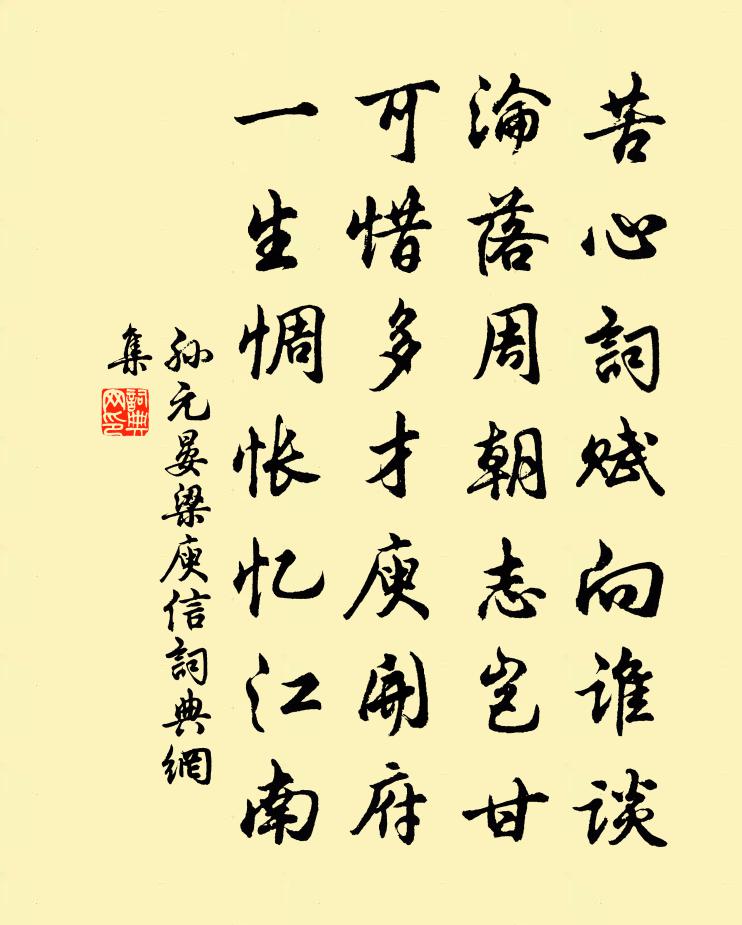 苦心詞赋向谁谈
淪落周朝志岂甘
可惜多才庾開府
一生惆怅忆江南
孙元晏梁庾信詞典網
集
詞典网印